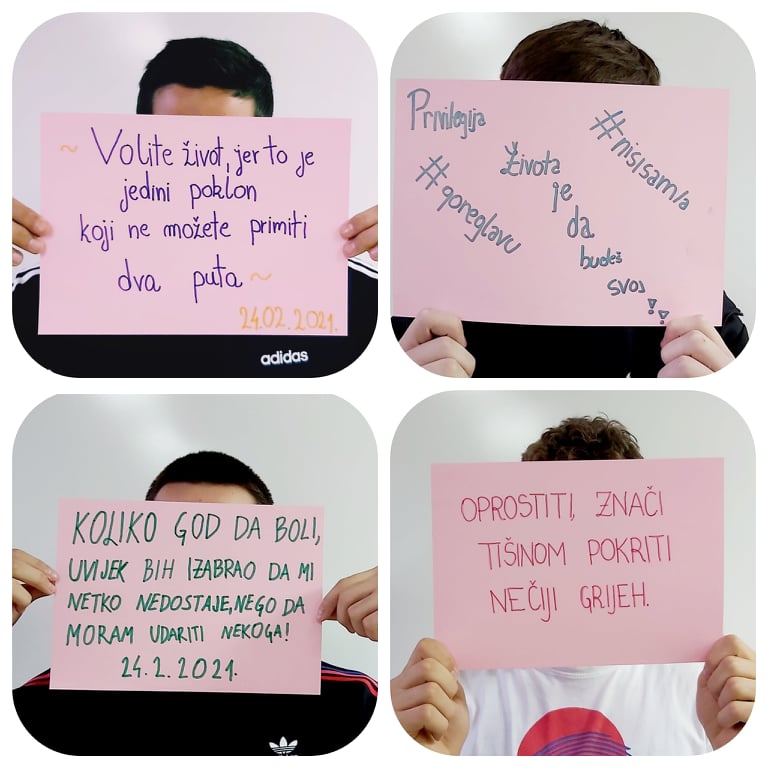 ~ Volite život, jer to je
jedini poklon
koji ne možete primiti
dva puta ~
24.02.2021.
adidas
Privilegija
Života
je
da
budeš
svoj !!
#nisisam/a
#goreglavu
KOLIKO GOD DA BOLI,
UVIJEK BIH IZABRAO DA MI
NETKO NEDOSTAJE, NEGO DA
MORAM UDARITI NEKOGA!
24.2.2021.
OPROSTITI, ZNAČI
TIŠINOM POKRITI
NEČIJI GRIJEH.